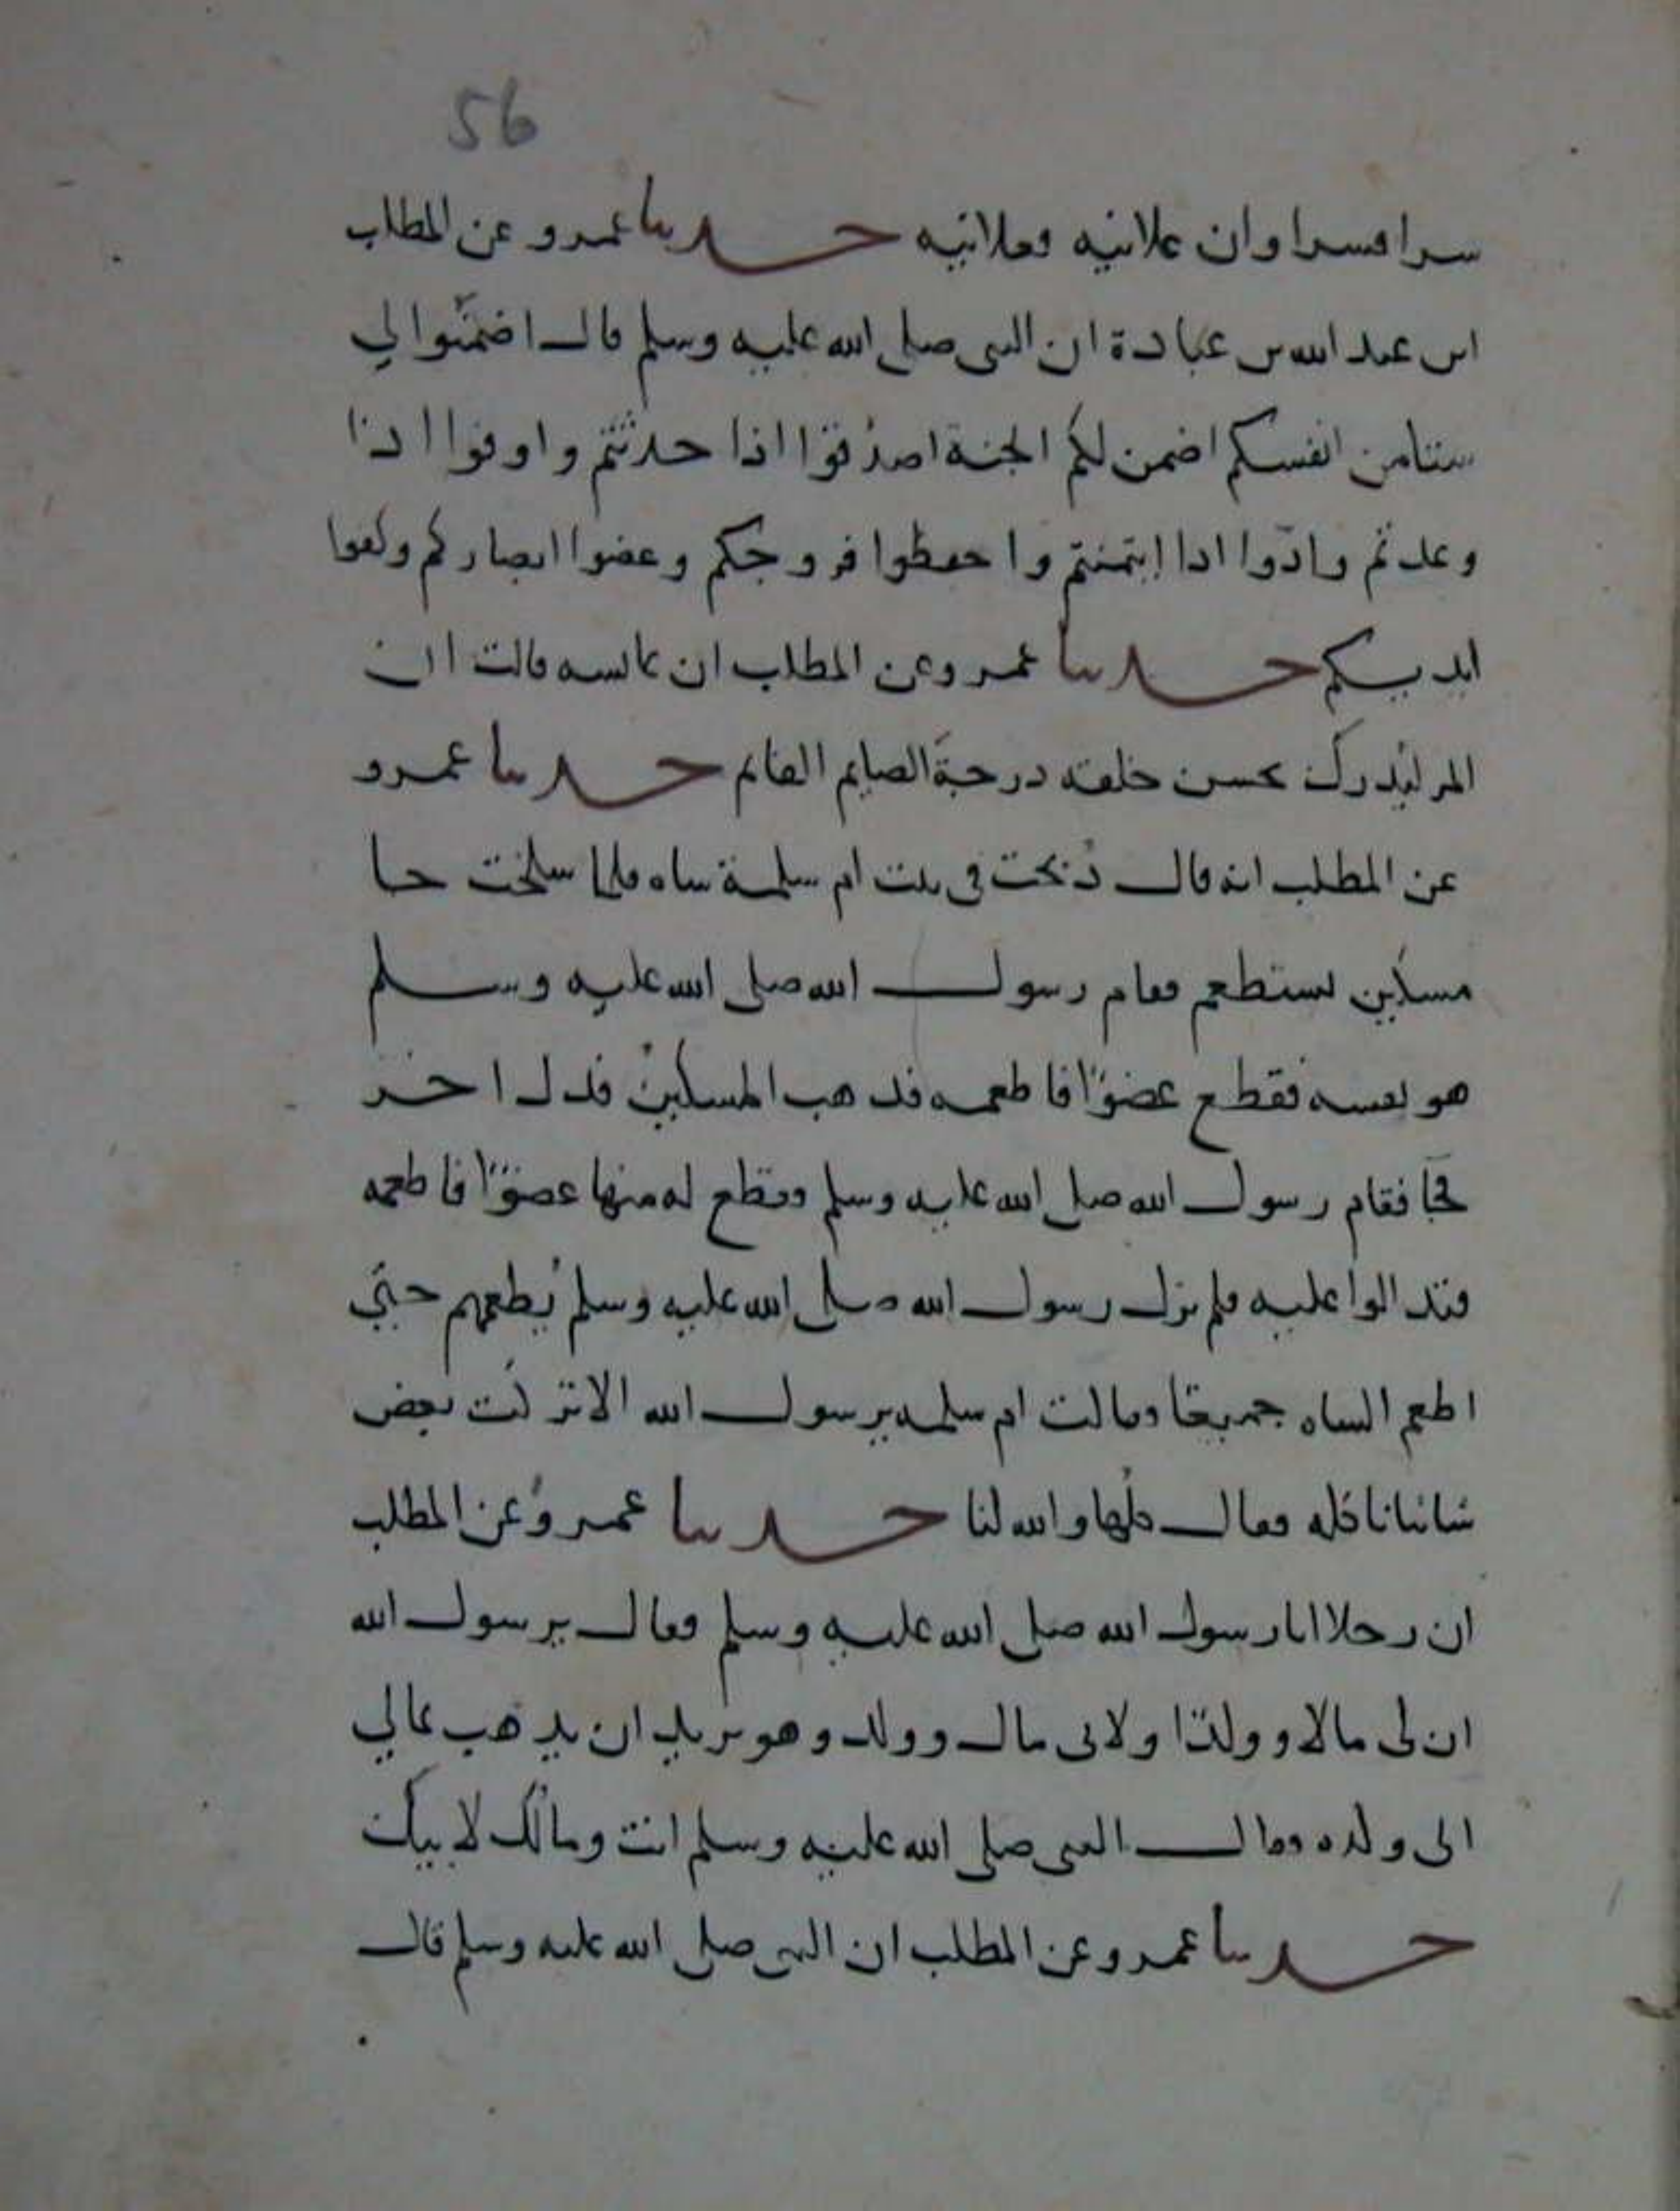 56
سرا فسرا وان علانيه فعلانيه حدثنا عمرو عن المطلب
ابن عبد الله بن عبادة ان النبى صلى الله عليه وسلم قال اضمنوا لي
ستا من انفسكم اضمن لكم الجنة اصدقوا اذا حدثتم واوفوا اذا
وعدتم وادّوا اذا إيتمنتم واحفظوا فروجكم وغضوا ابصاركم وكفوا
ايديكم حدثنا عمرو عن المطلب ان عائشه قالت ان
المر ليُدرك بحسن خلقه درجة الصايم القايم حدثنا عمرو
عن المطلب انه قال ذُبحت في بيت ام سلمة شاه فلما سلخت جا
مسكين يستطعم فقام رسول الله صلى الله عليه وسلم
هو بنفسه فقطع عضوًا فاطعمه فذهب المسكين فدل اخر
فجآ فقام رسول الله صلى الله عليه وسلم فقطع له منها عضوًا فاطعمه
فتدالوا عليه فلم يزل رسول الله صلى الله عليه وسلم يُطعمهم حتي
اطعم الشاه جميعا فقالت ام سلمه يرسول الله الا تركت بعض
شاتنا ناكله فقال كلها والله لنا حدثنا عمرو عن المطلب
ان رجلا اتا رسول الله صلى الله عليه وسلم فقال يرسول الله
ان لى مالا وولدًا ولابى مال وولد وهو يريد ان يذهب بمالي
الى ولده فقال النبى صلى الله عليه وسلم انت ومالُك لابيك
حدثنا عمرو عن المطلب ان النبى صلى الله عليه وسلم قال